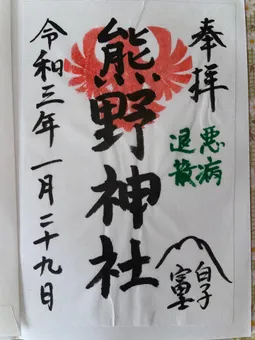 奉拝
悪病
退散
白子
富士
熊野神社
令和三年一月二十九日